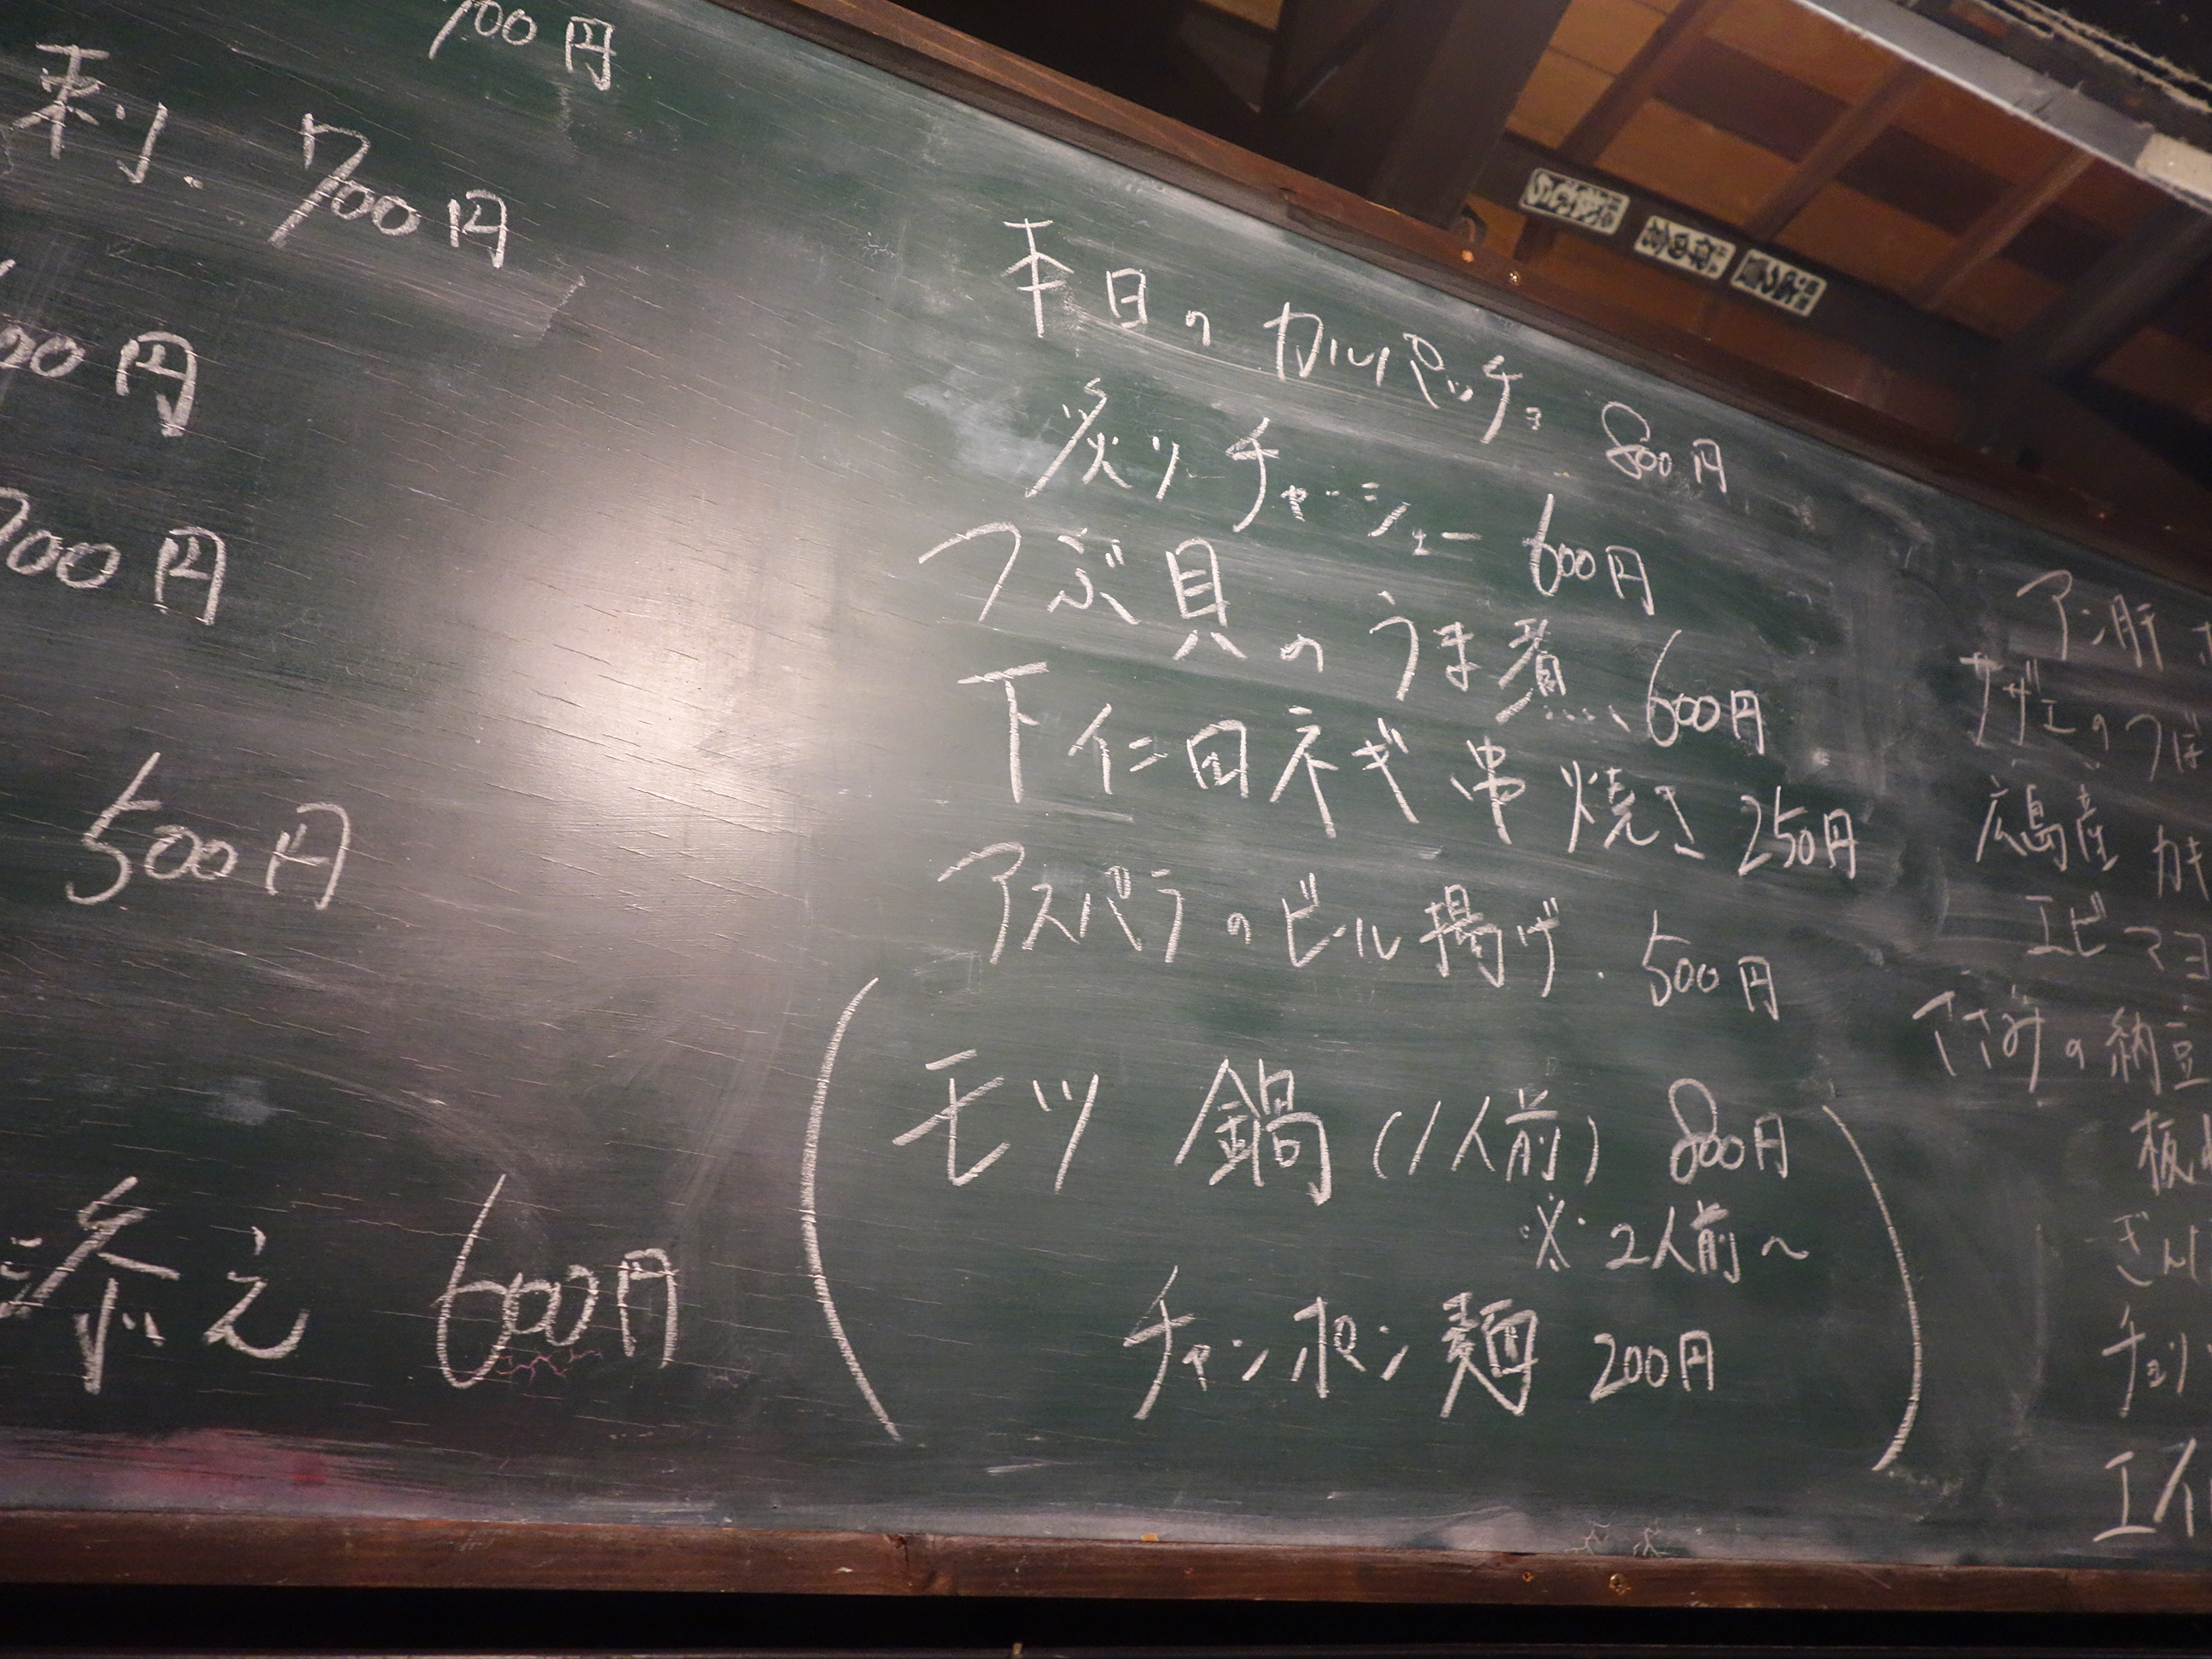 700円
刺、700円
00円
700円
500円
添え 600円
本日のカルパッチョ 800円
炙りチャーシュー 600円
つぶ貝のうま煮 600円
下仁田ネギ串焼き 250円
アスパラのビール揚げ. 500円
モツ鍋(1人前) 800円
※2人前~
チャンポン麺 200円
アン肝
サザエのつぼ
広島産 カキ
エビマヨ
ささみの納豆
板
ぎん
チョリ
エイ